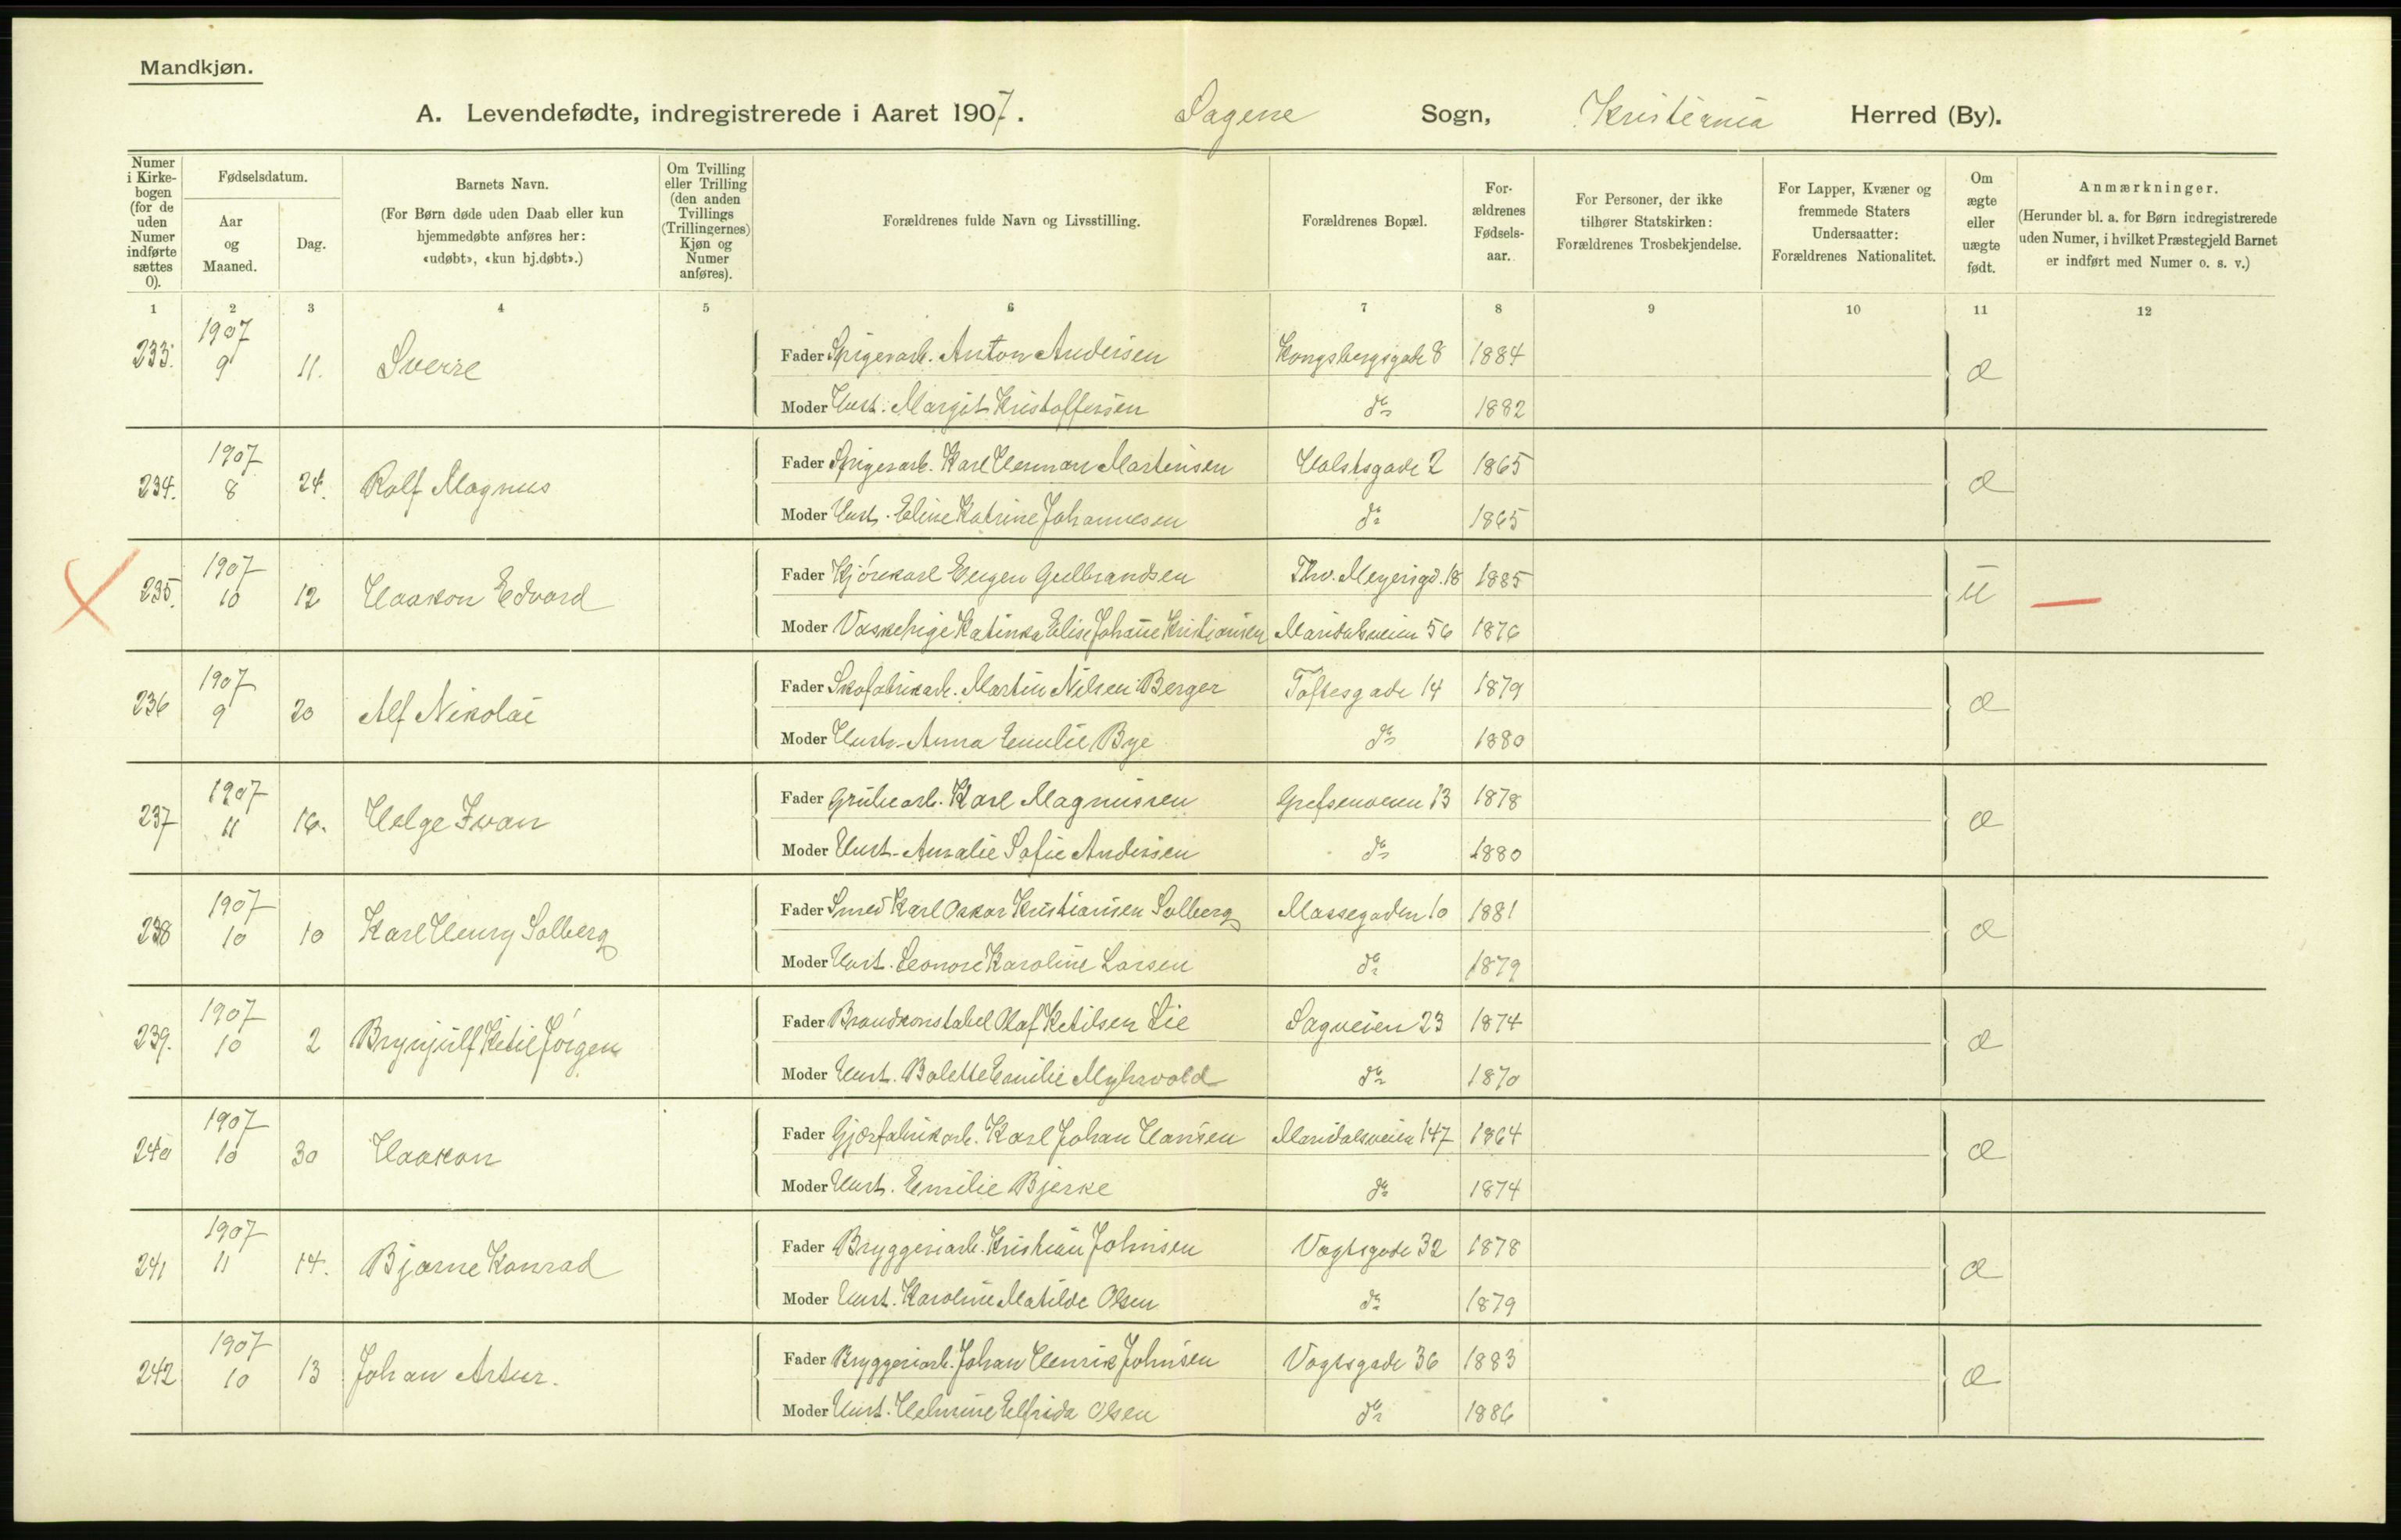 Mandkjøn.
A. Levendefødte, indregistrerede i Aaret 1907. Sagene Sogn, Kristiania Herred (By).
Numer i Kirkebogen (for de uden Numer indførte sættes 0).
Fødselsdatum.
Aar og Maaned.
Dag.
Barnets Navn.
(For Børn døde uden Daab eller kun hjemmedøbte anføres her: «udøbt», «kun hj.døbt».)
Om Tvilling eller Trilling (den anden Tvillings (Trillingernes) Kjøn og Numer anføres).
Forældrenes fulde Navn og Livsstilling.
Forældrenes Bopæl.
Forældrenes Fødselsaar.
For Personer, der ikke tilhører Statskirken: Forældrenes Trosbekjendelse.
For Lapper, Kvæner og fremmede Staters Undersaatter: Forældrenes Nationalitet.
Om ægte eller uægte født.
Anmærkninger.
(Herunder bl. a. for Børn indregistrerede uden Numer, i hvilket Præstegjeld Barnet er indført med Numer o. s. v.)
1 2 3 4 5 6 7 8 9 10 11 12
233. 1907 9 11. Sverre Fader Spigerarb. Anton Andersen Kongsbergsgade 8 1884 æ
Moder Hust. Margit Kristoffersen do 1882
234. 1907 8 24. Rolf Magnus Fader Spigerarb. Karl Herman Martinsen Holstsgade 2 1865 æ
Moder Hust. Eline Katrine Johannesen do 1865
235. 1907 10 12 Haakon Edvard Fader Kjørekarl Eugen Gulbrandsen Thv. Meyersgd. 18 1885 u
Moder Vaskepige Katinka Elise Johanne Kristiansen Maridalsveien 56 1876
236 1907 9 20 Alf Nikolai Fader Skofabrikarb. Martin Nilsen Berger Toftesgade 14 1879 æ
Moder Hust. Anna Emilie Bye do 1880
237 1907 11 16. Helge Ivan Fader Grubearb. Karl Magnussen Grefsenveien 13 1878 æ
Moder Hust. Amalie Sofie Andersen do 1880
238 1907 10 10 Karl Henry Solberg Fader Smed Karl Oskar Kristiansen Solberg Mossegaden 10 1881 æ
Moder Hust. Leonore Karoline Larsen do 1879
239. 1907 10 2 Brynjulf Ketil Jørgen Fader Brandkonstabel Olaf Ketilsen Lie Sagveien 23 1874 æ
Moder Hust. Bolette Emilie Myhrvold do 1870
240 1907 10 30 Haakon Fader Gjærfabrikarb. Karl Johan Hansen Maridalsveien 147 1864 æ
Moder Hust. Emilie Bjerke do 1874
241 1907 11 14. Bjarne Konrad Fader Bryggeriarb. Kristian Johnsen Vogtsgade 32 1878 æ
Moder Hust. Karoline Matilde Olsen do 1879
242 1907 10 13 Johan Artur. Fader Bryggeriarb. Johan Henrik Johnsen Vogtsgade 36 1883 æ
Moder Hust. Helmine Elfrida Olsen do 1886